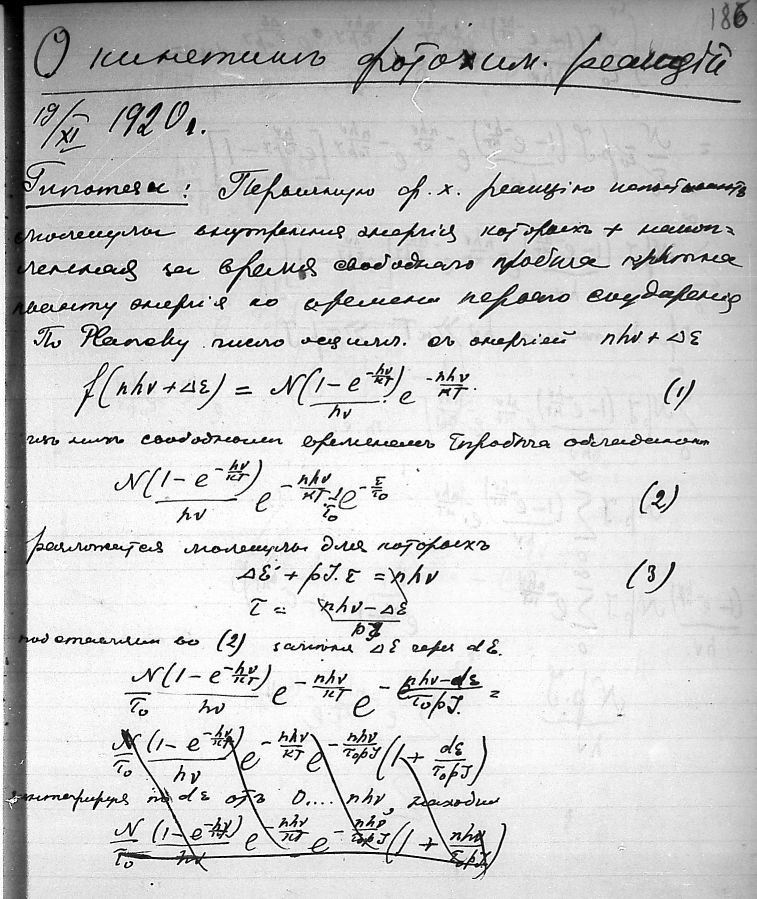 186
О кинетикѣ фотохим. реакцій
19/XI 1920 г.
Гипотеза: Первичную ф. х. реакцію
молекулы внутренняя энергія которыхъ + накоп=
ленная за время свободнаго пробѣга кратна
кванту энергія ко времени перваго соударенія
По Planckу число осцилл. съ энергіей nhν + Δε
f(nhν + Δε) = N(1 − e^{−hν/κT})/hν · e^{−nhν/κT} (1)
изъ нихъ свободнымъ временемъ пробѣга обладаютъ
N(1 − e^{−hν/κT})/hν e^{−nhν/κT} 1/τ₀ e^{−τ/τ₀} (2)
разложатся молекулы для которыхъ
Δε + pJ.τ = nhν (3)
τ = (nhν − Δε)/pJ
подставляя во (2) замѣняя Δε через dε.
N/τ₀ (1 − e^{−hν/κT})/hν e^{−nhν/κT} e^{−(nhν−dε)/τ₀pJ} =
N/τ₀ (1 − e^{−hν/κT})/hν e^{−nhν/κT} e^{−nhν/τ₀pJ} (1 + dε/τ₀pJ)
интегрируя по dε отъ 0.... nhν, находим
N/τ₀ (1 − e^{−hν/κT})/hν e^{−nhν/κT} e^{−nhν/τ₀pJ} (1 + nhν/τ₀pJ)